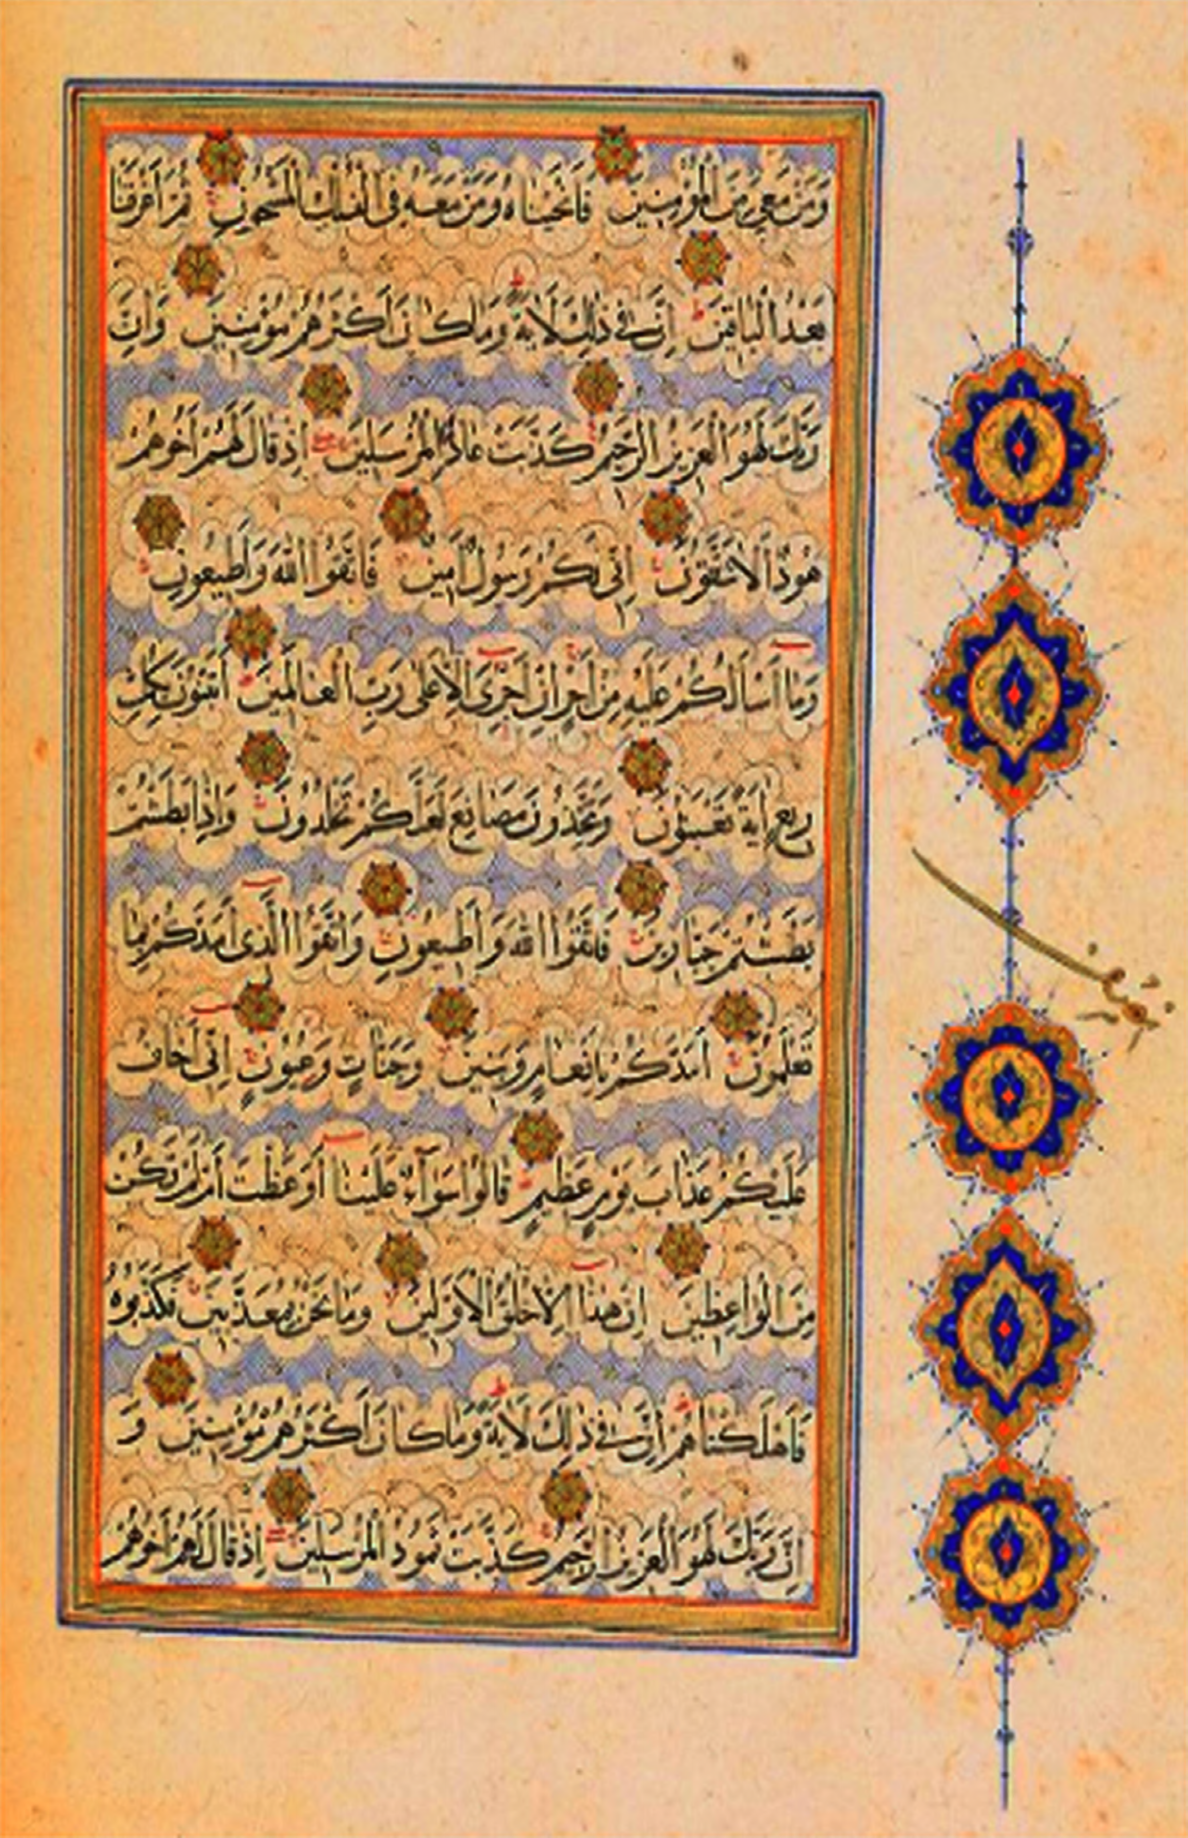 وَمَنْ مَعِيَ مِنَ الْمُؤْمِنِينَ فَانْجَيْنَاهُ وَمَنْ مَعَهُ فِي الْفُلْكِ الْمَشْحُونِ ثُمَّ اَغْرَقْنَا
بَعْدُ الْبَاقِينَ اِنَّ فِي ذٰلِكَ لَاٰيَةً وَمَا كَانَ اَكْثَرُهُمْ مُؤْمِنِينَ وَاِنَّ
رَبَّكَ لَهُوَ الْعَزِيزُ الرَّحِيمُ كَذَّبَتْ عَادٌ الْمُرْسَلِينَ اِذْ قَالَ لَهُمْ اَخُوهُمْ
هُودٌ اَلَا تَتَّقُونَ اِنِّي لَكُمْ رَسُولٌ اَمِينٌ فَاتَّقُوا اللّٰهَ وَاَطِيعُونِ
وَمَا اَسْاَلُكُمْ عَلَيْهِ مِنْ اَجْرٍ اِنْ اَجْرِيَ اِلَّا عَلٰى رَبِّ الْعَالَمِينَ اَتَبْنُونَ بِكُلِّ
رِيعٍ اٰيَةً تَعْبَثُونَ وَتَتَّخِذُونَ مَصَانِعَ لَعَلَّكُمْ تَخْلُدُونَ وَاِذَا بَطَشْتُمْ
بَطَشْتُمْ جَبَّارِينَ فَاتَّقُوا اللّٰهَ وَاَطِيعُونِ وَاتَّقُوا الَّذِي اَمَدَّكُمْ بِمَا
تَعْلَمُونَ اَمَدَّكُمْ بِاَنْعَامٍ وَبَنِينَ وَجَنَّاتٍ وَعُيُونٍ اِنِّي اَخَافُ
عَلَيْكُمْ عَذَابَ يَوْمٍ عَظِيمٍ قَالُوا سَوَآءٌ عَلَيْنَا اَوَعَظْتَ اَمْ لَمْ تَكُنْ
مِنَ الْوَاعِظِينَ اِنْ هٰذَا اِلَّا خُلُقُ الْاَوَّلِينَ وَمَا نَحْنُ بِمُعَذَّبِينَ فَكَذَّبُوهُ
فَاَهْلَكْنَاهُمْ اِنَّ فِي ذٰلِكَ لَاٰيَةً وَمَا كَانَ اَكْثَرُهُمْ مُؤْمِنِينَ وَ
اِنَّ رَبَّكَ لَهُوَ الْعَزِيزُ الرَّحِيمُ كَذَّبَتْ ثَمُودُ الْمُرْسَلِينَ اِذْ قَالَ لَهُمْ اَخُوهُمْ